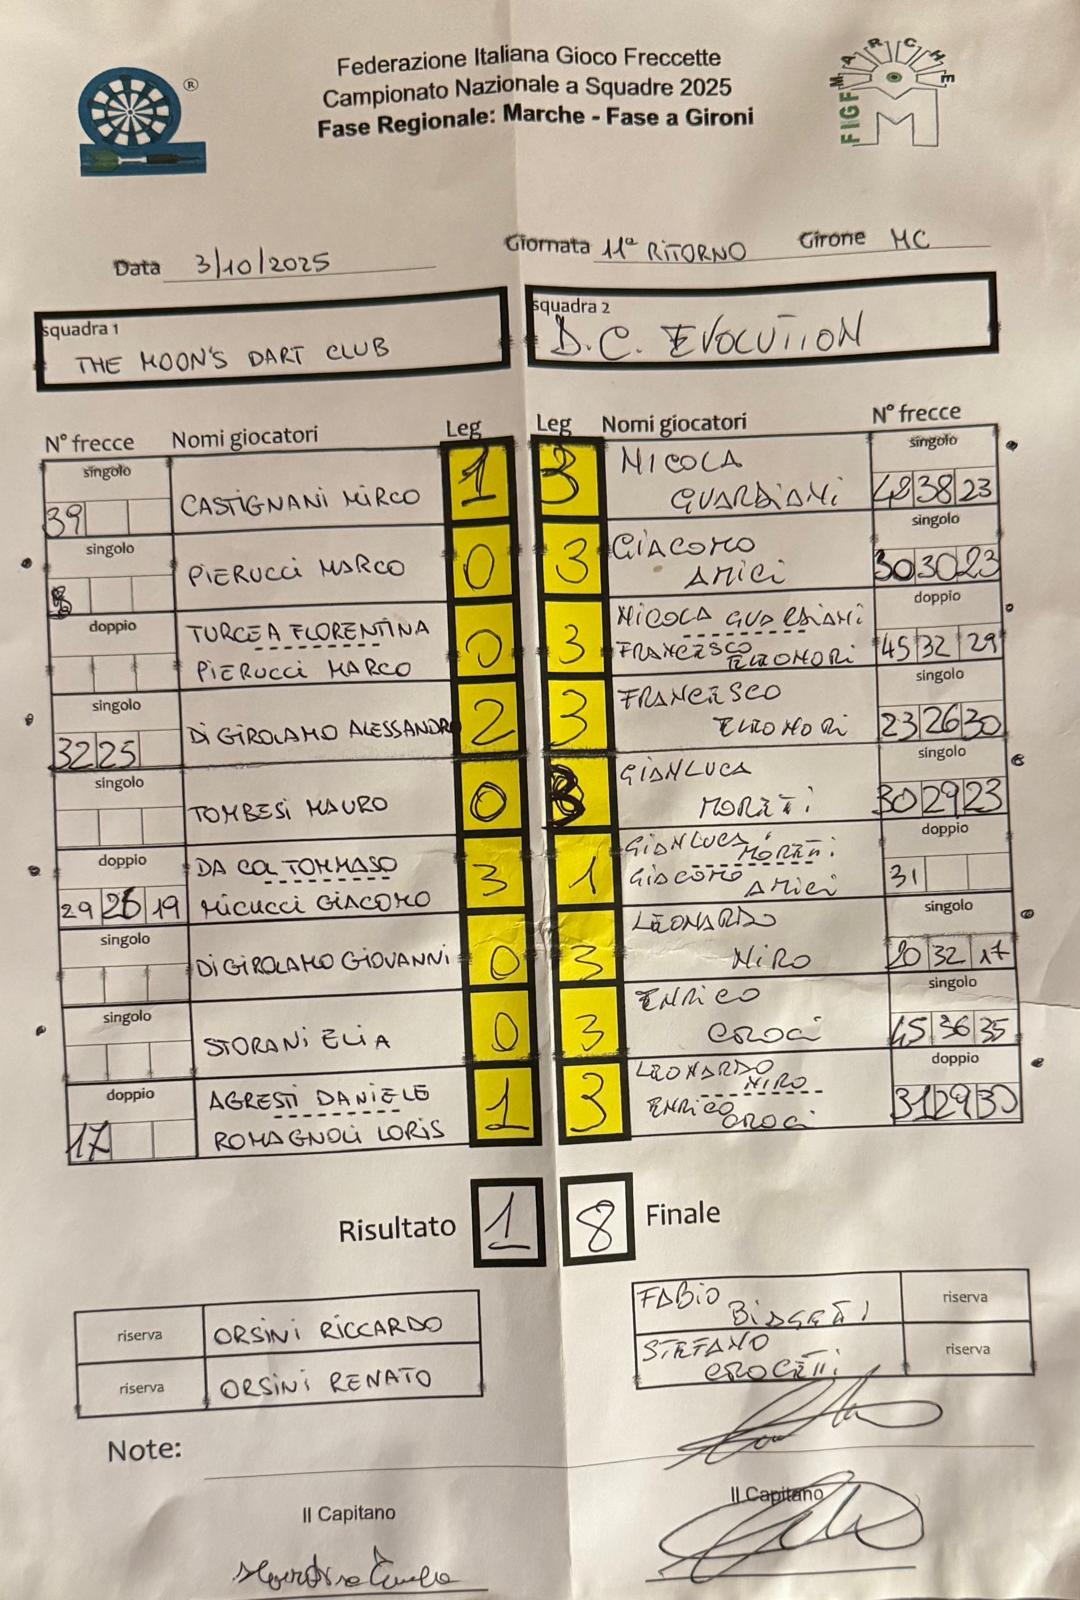 Federazione Italiana Gioco Freccette
Campionato Nazionale a Squadre 2025
Fase Regionale: Marche - Fase a Gironi
®
FIGF MARCHE
M
Data 3/10/2025
Giornata 11ª RITORNO Girone MC
squadra 1
THE MOON'S DART CLUB
squadra 2
D.C. EVOLUTION
N° frecce Nomi giocatori Leg Leg Nomi giocatori N° frecce
singolo
39
CASTIGNANI MIRCO
1 3
NICOLA
GUARDIANI
singolo
48 38 23
singolo
PIERUCCI MARCO
0 3
GIACOMO
AMICI
singolo
30 30 23
doppio
TURCEA FLORENTINA
PIERUCCI MARCO
0 3
NICOLA GUARDIANI
FRANCESCO ELEOMORI
doppio
45 32 29
singolo
32 25
DI GIROLAMO ALESSANDRO
2 3
FRANCESCO
ELEOMORI
singolo
23 26 30
singolo
TOMBESI MAURO
0 3
GIANLUCA
MORETTI
singolo
30 29 23
doppio
29 26 19
DA COL TOMMASO
MICUCCI GIACOMO
3 1
GIANLUCA MORETTI
GIACOMO AMICI
doppio
31
singolo
DI GIROLAMO GIOVANNI
0 3
LEONARDO
NIRO
singolo
20 32 17
singolo
STORANI ELIA
0 3
ENRICO
CROCI
singolo
45 36 35
doppio
17
AGRESTI DANIELE
ROMAGNOLI LORIS
1 3
LEONARDO NIRO
ENRICO CROCI
doppio
31 29 30
Risultato 1 8 Finale
riserva ORSINI RICCARDO
riserva ORSINI RENATO
FABIO
BIAGETTI
riserva
STEFANO
CROCETTI
riserva
Note:
Il Capitano
Il Capitano